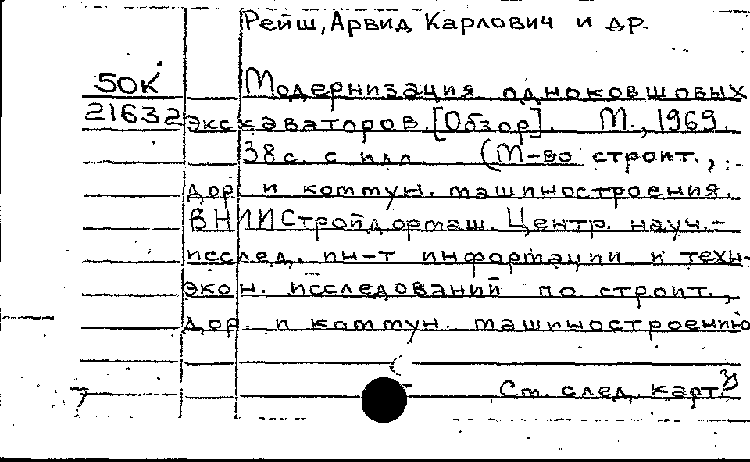 Рейш, Арвид Карлович и др.
50К Модернизация одноковшовых
21632 экскаваторов. [Обзор]. М., 1969.
38с. с илл (М-во строит.,
дор. и коммун. машиностроения.
ВНИИСтройдормаш. Центр. науч.-
исслед. ин-т информации и техн-
экон. исследований по строит.,
дор. и коммун. машиностроению
См. след. карт.